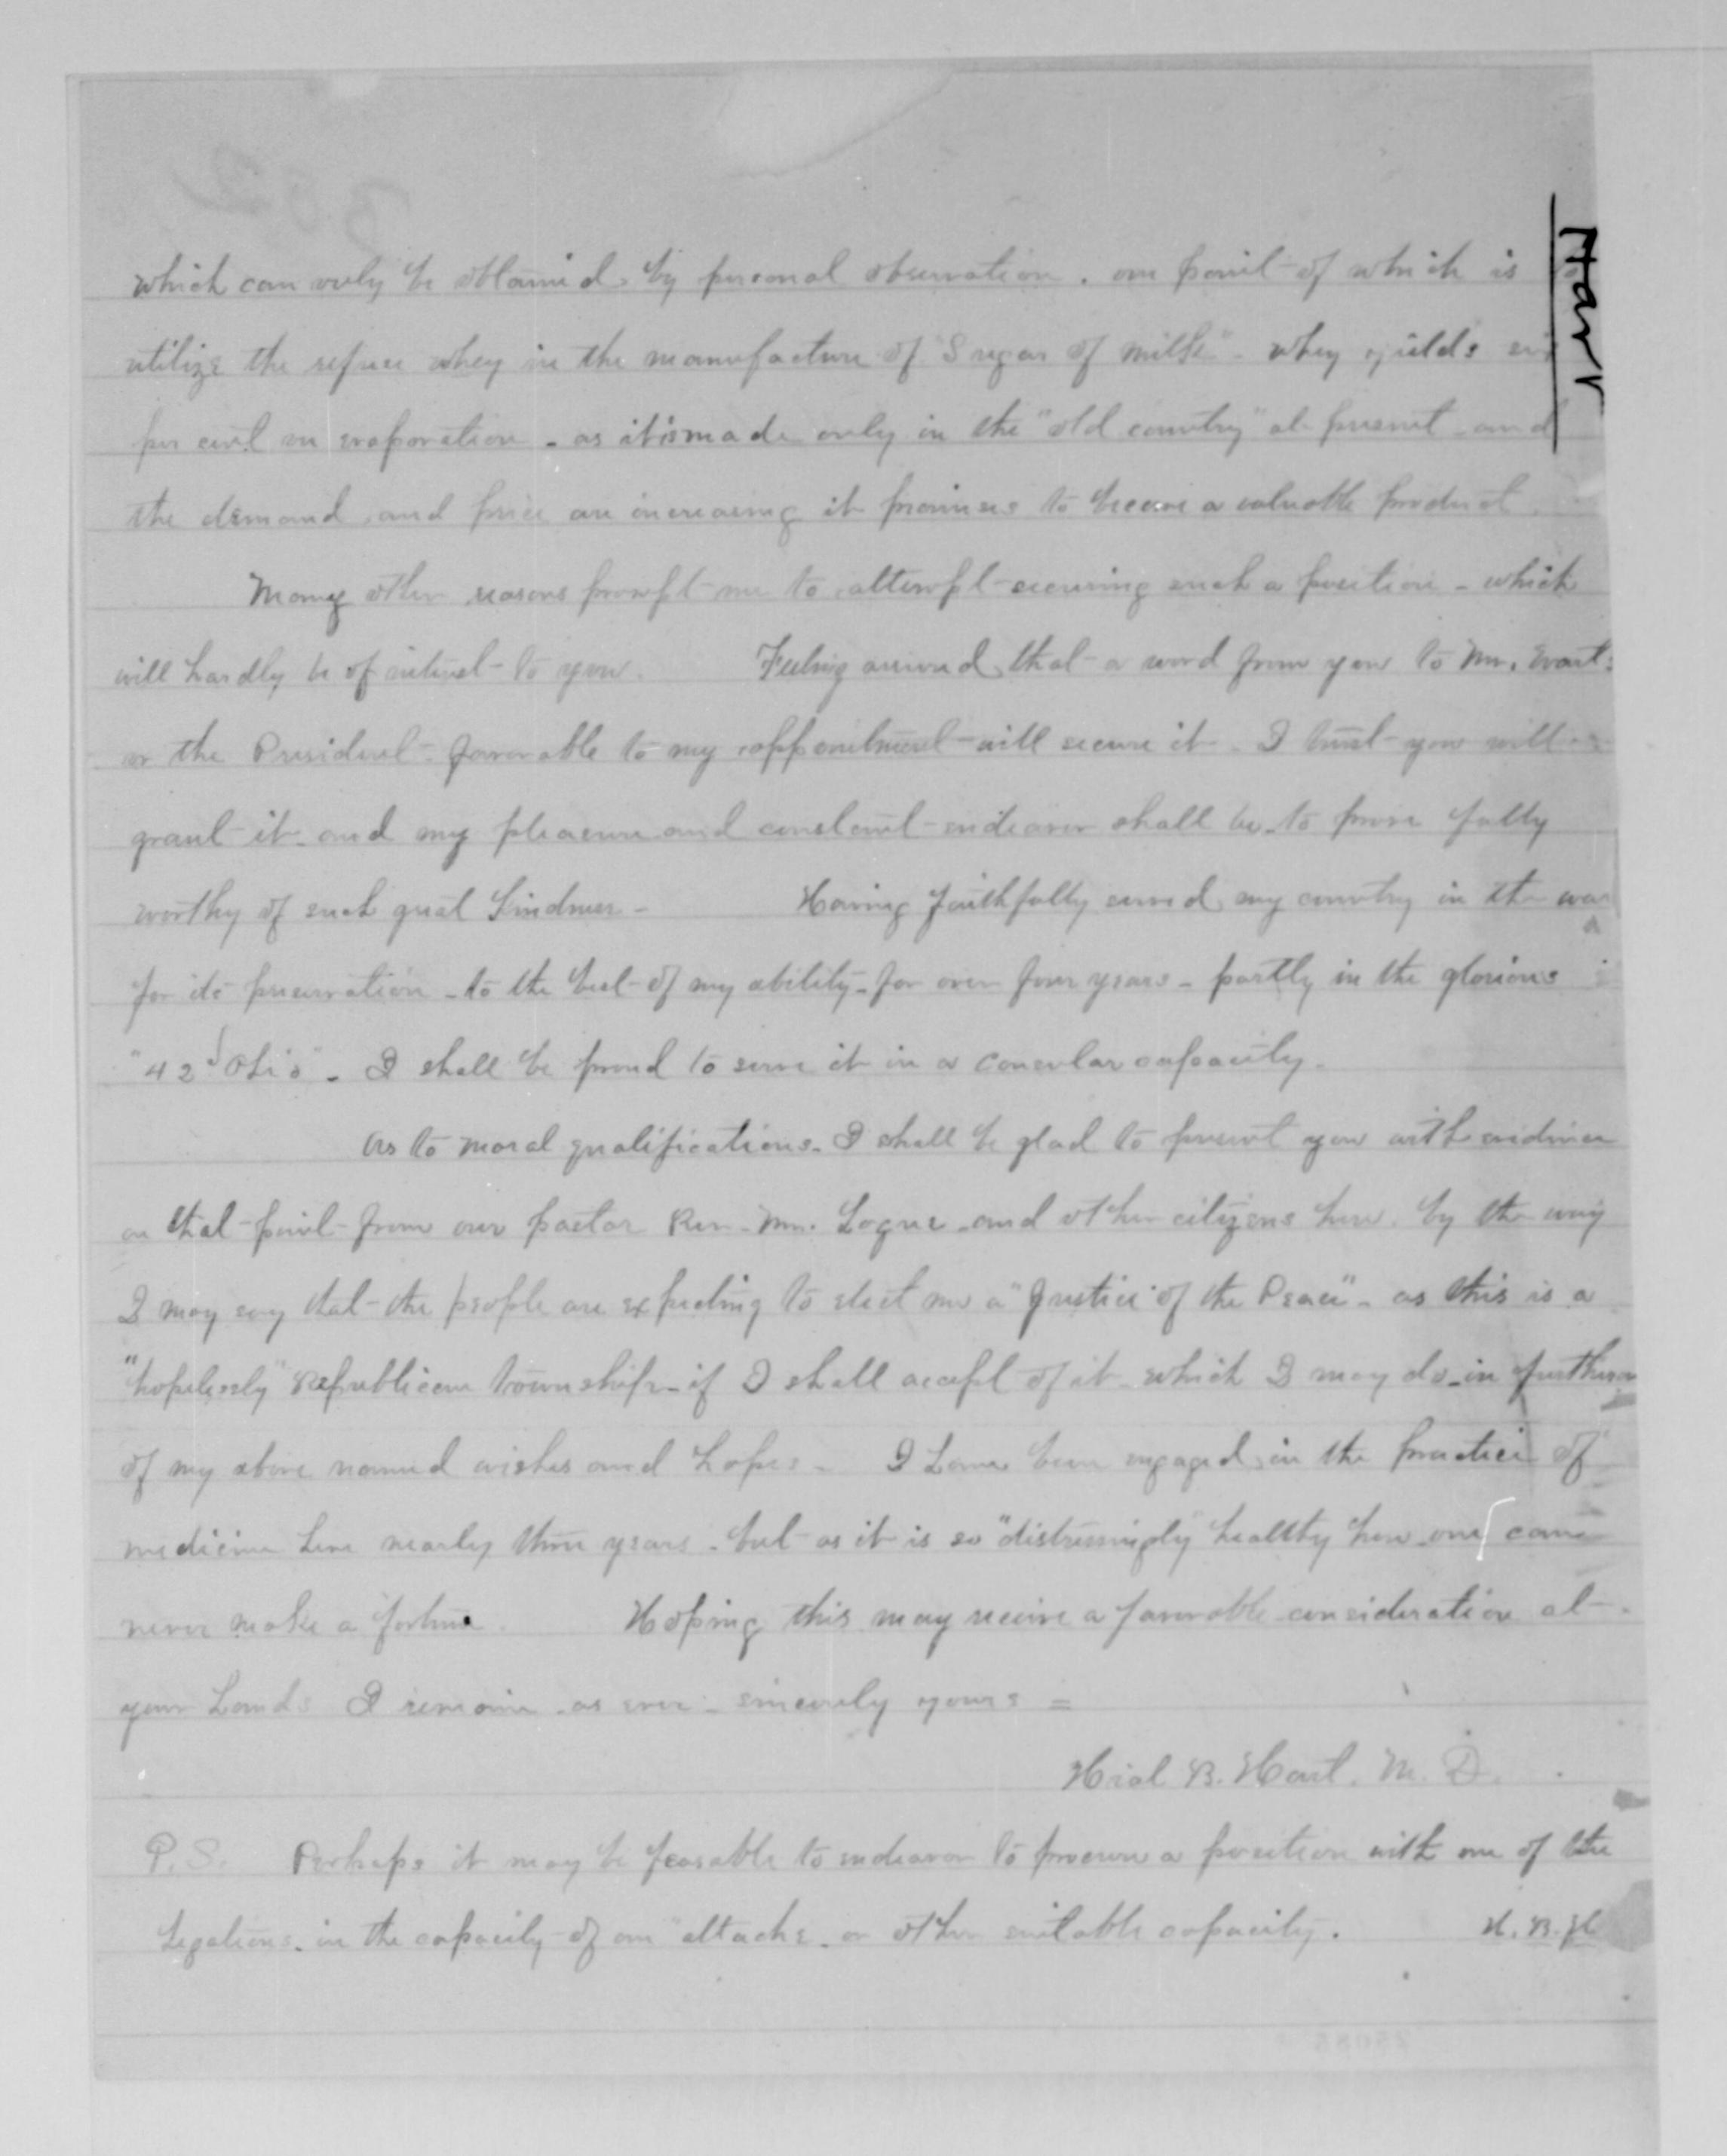 Hart
which can only be obtained by personal observation. one point of which is to
utilize the refuse whey in the manufacture of "Sugar of milk" - whey yields
per cent on evaporation - as it is made only in the "old country" at present - and
the demand and price are increasing it promises to become a valuable product.
Many other reasons prompt me to attempt securing such a position - which
will hardly be of interest to you. Feeling assured that a word from you to Mr. Evarts
or the President - favorable to my appointment - will secure it - I trust you will
grant it and my pleasure and constant endeavor shall be to prove fully
worthy of such great kindness - Having faithfully served my country in the war
for its preservation - to the best of my ability - for over four years - partly in the glorious
"42d Ohio" - I shall be proud to serve it in a consular capacity.
As to moral qualifications. I shall be glad to present you with evidence
on that point from our pastor Rev. Mr. Logue and other citizens here. by the way
I may say that the people are expecting to elect me a "Justice of the Peace" - as this is a
"hopelessly" Republican township - if I shall accept of it - which I may do - in furtherance
of my above named wishes and hopes - I have been engaged in the practice of
medicine here nearly three years - but as it is so "distressingly" healthy here one can
never make a fortune. Hoping this may receive a favorable consideration at
your hands I remain - as ever - sincerely yours =
Hial B. Hart. M. D.
P.S. Perhaps it may be feasable to endeavor to procure a position with one of the
Legations. in the capacity of an attache - or other suitable capacity. H. B. H